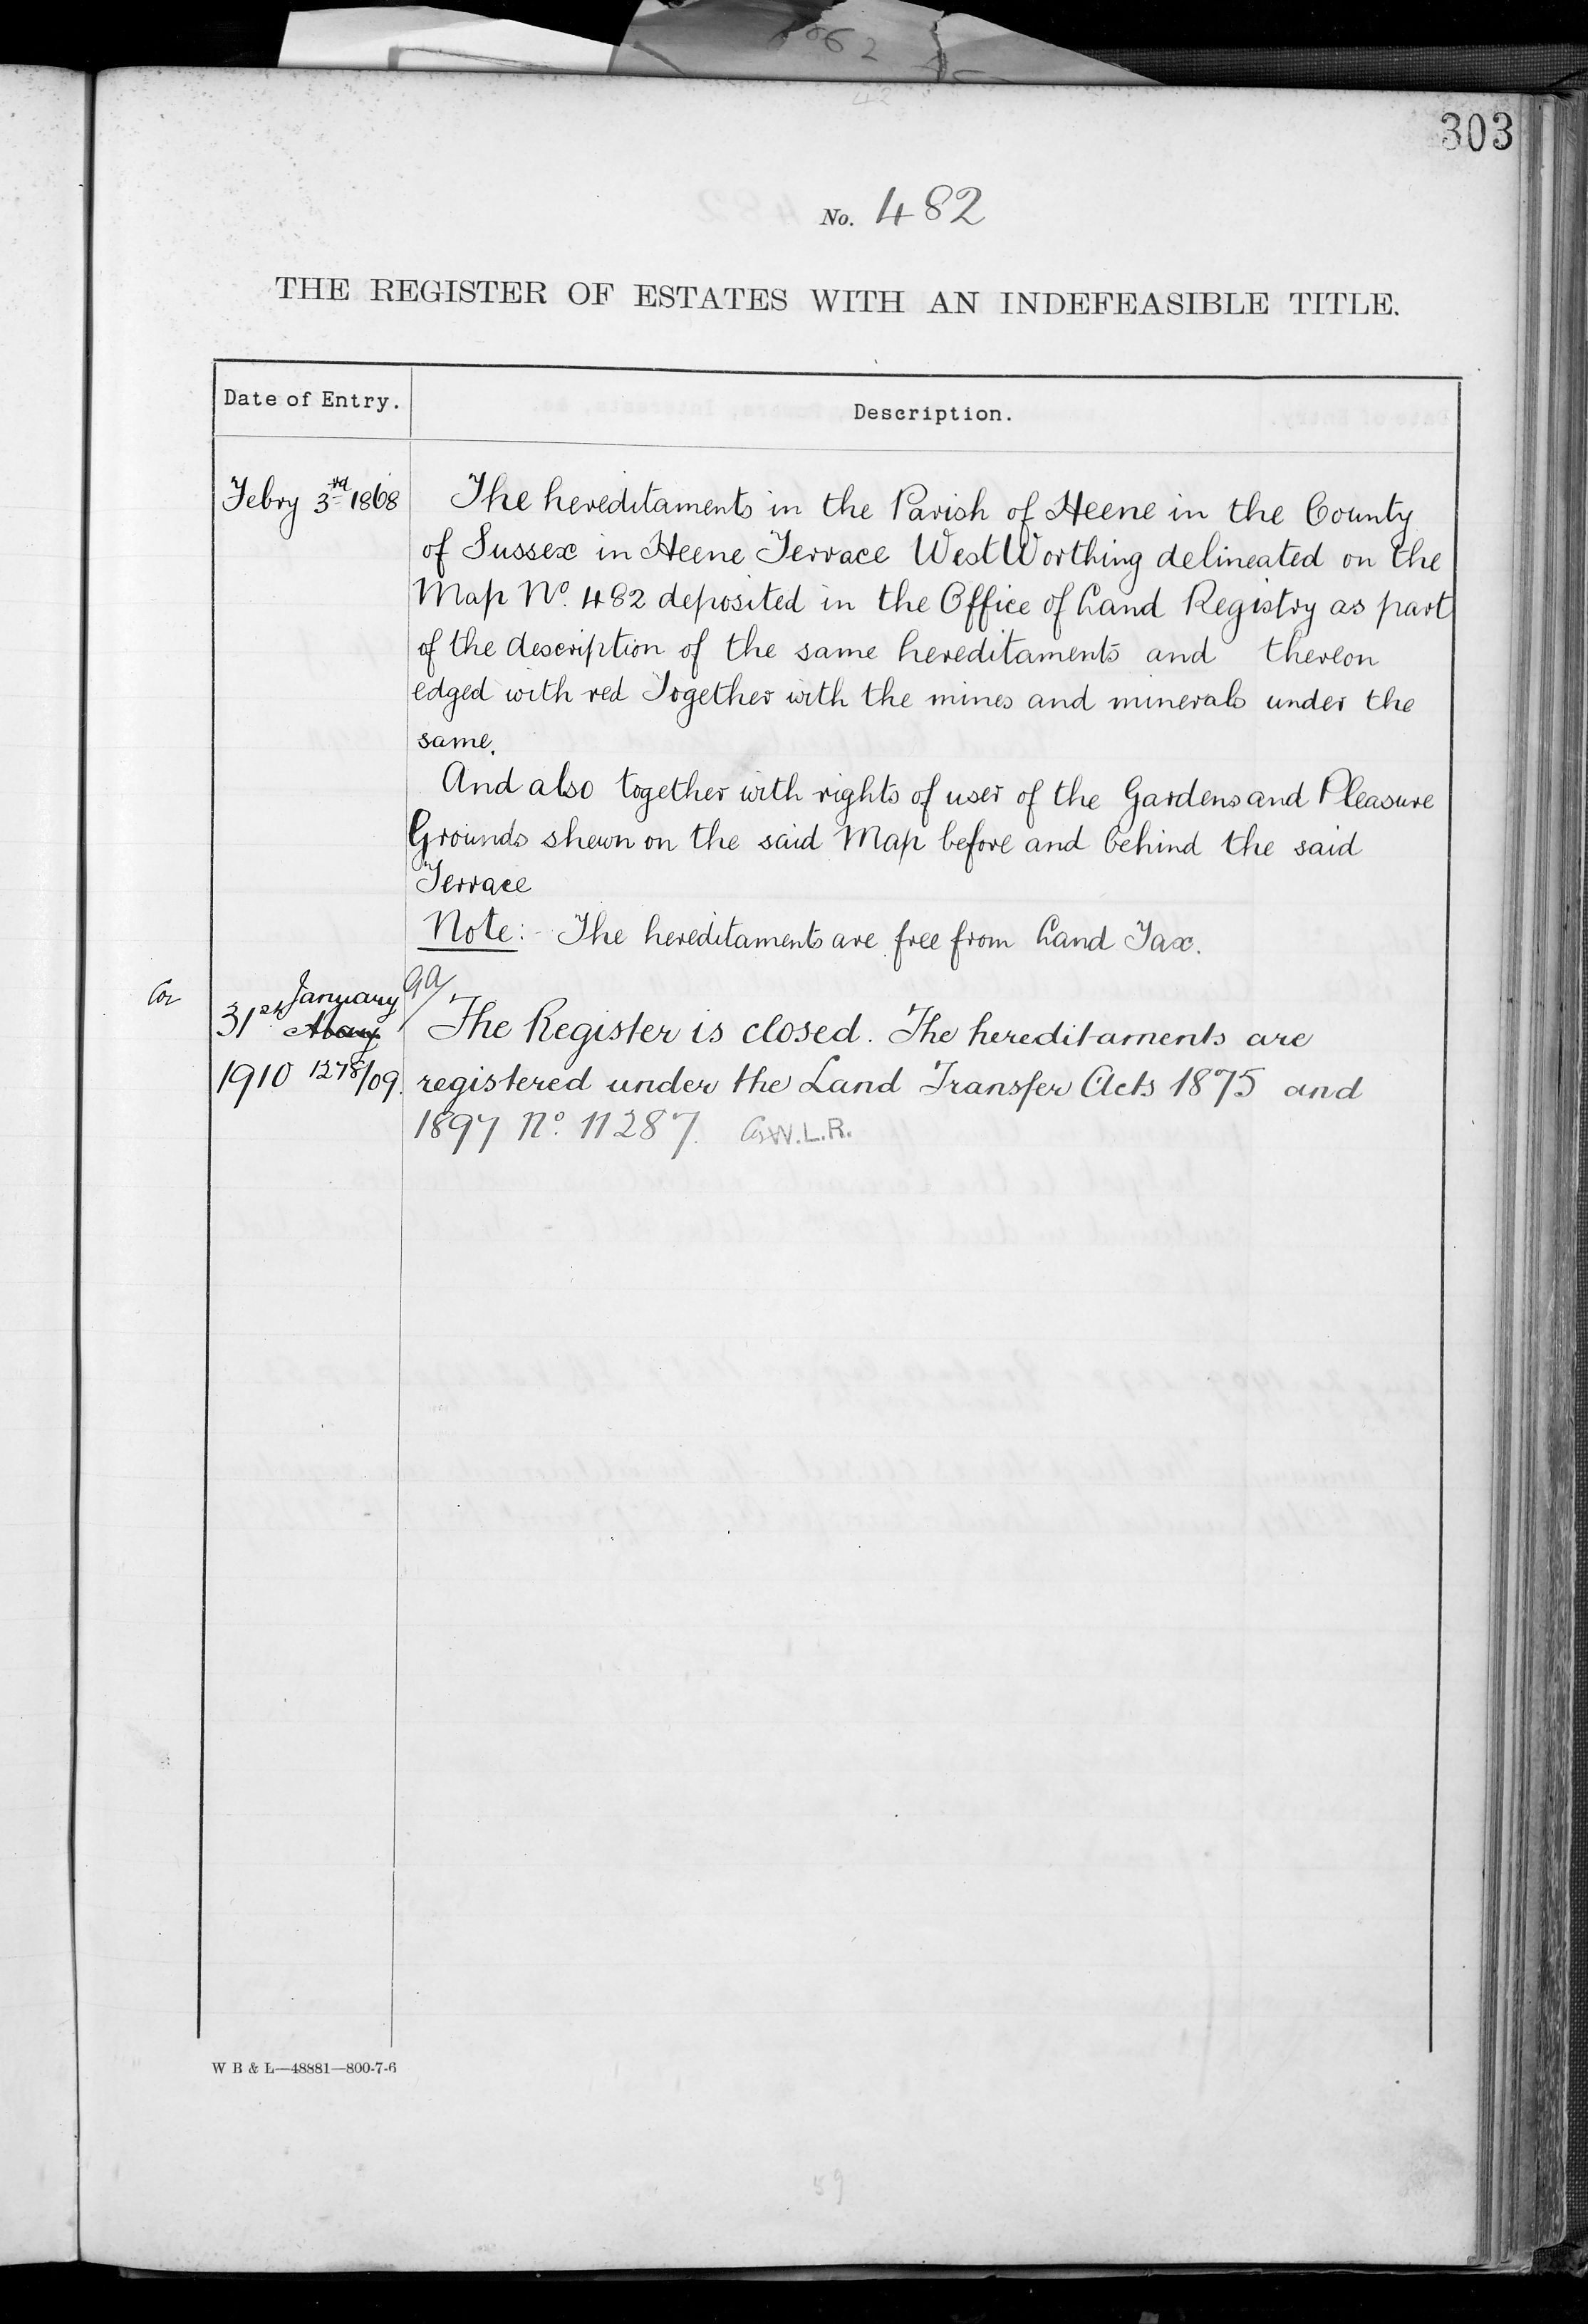 303
No. 482
THE REGISTER OF ESTATES WITH AN INDEFEASIBLE TITLE.
Date of Entry.
Description.
Febry 3rd 1868
The hereditaments in the Parish of Heene in the County
of Sussex in Heene Terrace West Worthing delineated on the
Map No. 482 deposited in the Office of Land Registry as part
of the description of the same hereditaments and thereon
edged with red Together with the mines and minerals under the
same.
And also together with rights of user of the Gardens and Pleasure
Grounds shewn on the said Map before and behind the said
Terrace
Note:- The hereditaments are free from Land Tax.
January
31st
1910 1278/09.
The Register is closed. The hereditaments are
registered under the Land Transfer Acts 1875 and
1897 No. 11287. W.L.R.
W B & L—48881—800-7-6
59